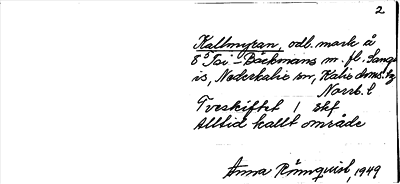 2
Kallmyran, odl. mark å
8³ Toi-Bäckmans m. fl. Sangi
is, Nederkalix sn, Kalix doms. tg
Norrb. l
Tveskiftet 1 ekf
Alltid kallt område
Anna Rönnquist, 1949